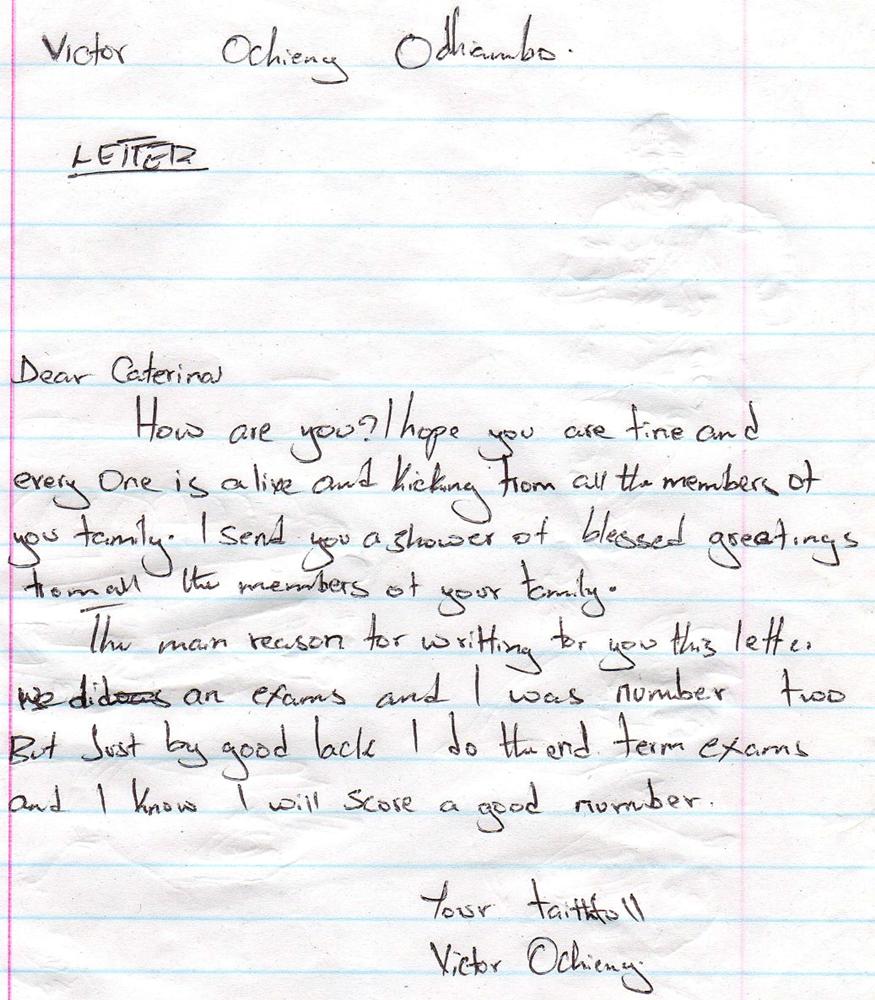 Victor Ochieng Odhiambo.
LETTER
Dear Caterina
How are you? I hope you are fine and
every One is alive and kicking from all the members of
you family. I send you a shower of blessed greetings
from all the members of your family.
The main reason for writting for you this letter
we did an exams and I was number two
But Just by good lack I do the end term exams
and I know I will score a good number.
Your faithfull
Victor Ochieng.